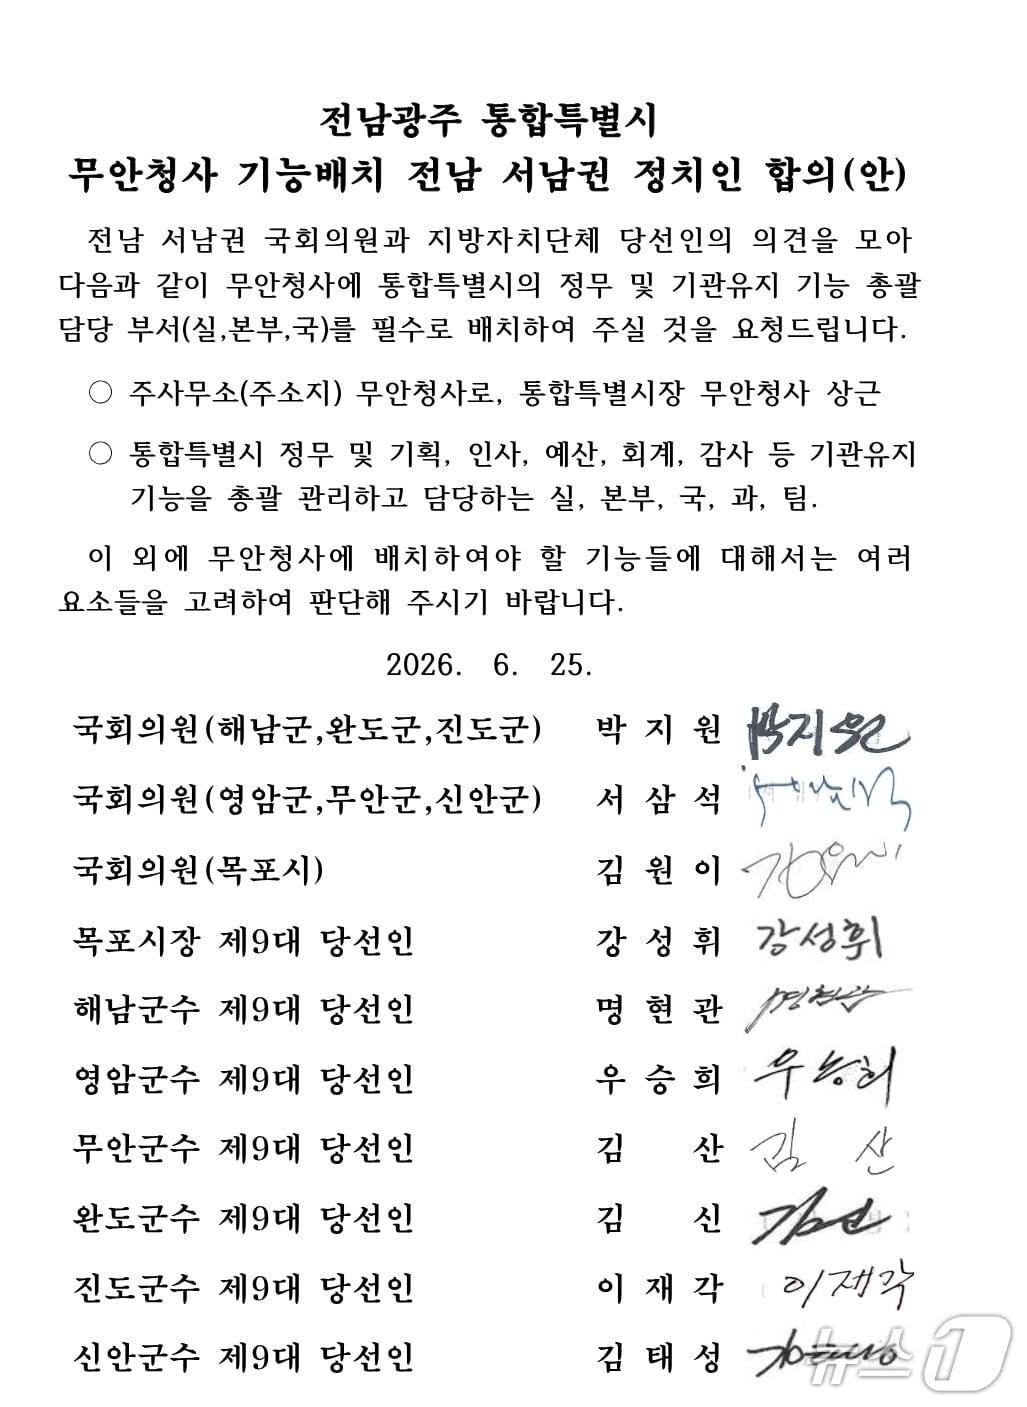 전남광주 통합특별시
무안청사 기능배치 전남 서남권 정치인 합의(안)
전남 서남권 국회의원과 지방자치단체 당선인의 의견을 모아
다음과 같이 무안청사에 통합특별시의 정무 및 기관유지 기능 총괄
담당 부서(실,본부,국)를 필수로 배치하여 주실 것을 요청드립니다.
○ 주사무소(주소지) 무안청사로, 통합특별시장 무안청사 상근
○ 통합특별시 정무 및 기획, 인사, 예산, 회계, 감사 등 기관유지
기능을 총괄 관리하고 담당하는 실, 본부, 국, 과, 팀.
이 외에 무안청사에 배치하여야 할 기능들에 대해서는 여러
요소들을 고려하여 판단해 주시기 바랍니다.
2026. 6. 25.
국회의원(해남군,완도군,진도군) 박 지 원 박지원
국회의원(영암군,무안군,신안군) 서 삼 석
국회의원(목포시) 김 원 이
목포시장 제9대 당선인 강 성 휘 강성휘
해남군수 제9대 당선인 명 현 관 명현관
영암군수 제9대 당선인 우 승 희 우승희
무안군수 제9대 당선인 김 산 김 산
완도군수 제9대 당선인 김 신 김신
진도군수 제9대 당선인 이 재 각 이재각
신안군수 제9대 당선인 김 태 성
뉴스1